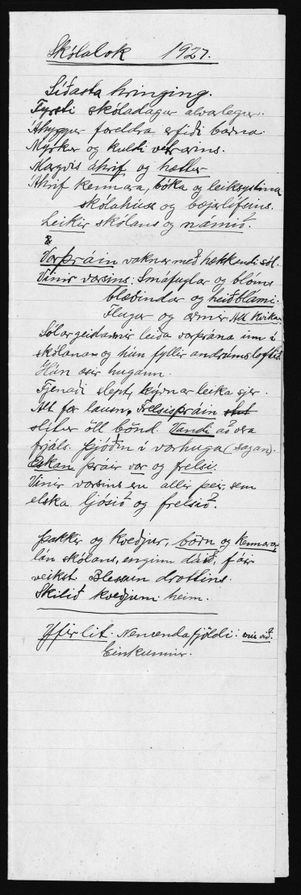 Skólalok 1927.
Síðasta hringing.
Fyrsti skóladagur alvarlegur.
Áhyggjur foreldra erfiði barna
Myrkur og kuldi vetrarins.
Margvís áhrif og hættir
Áhrif kennara, bóka og leiksystkina
skólahúss og bæjarlífsins.
Leikir skólans og námið.
Vorþráin vaknar með hækkandi sól.
Vinir vorsins. Smáfuglar og blóm
blævindar og heiðblámi
Flugur og ormar Alt kvikar
Sólargeislarnir leiða vorþrána inn í
skólanan og hún fyllir andrúmsloftið
Hún æsir hugann.
Fjenaði slept, kýrnar leika sjer.
Alt fer laust, frelsisþráin
slítur öll bönd. Vandi að vera
frjáls. Þjóðin í vorhuga (sagan).
Æskan þráir vor og frelsi.
Vinir vorsins eru allir þeir, sem
elska ljósið og frelsið.
Þakkir og kveðjur, börn og kennarar
lán skólans, enginn dáið, fáir
veikst Blessun drottins.
Skilið kveðjum heim.
Yfirlit. Nemendafjöldi.
Einkunnir.